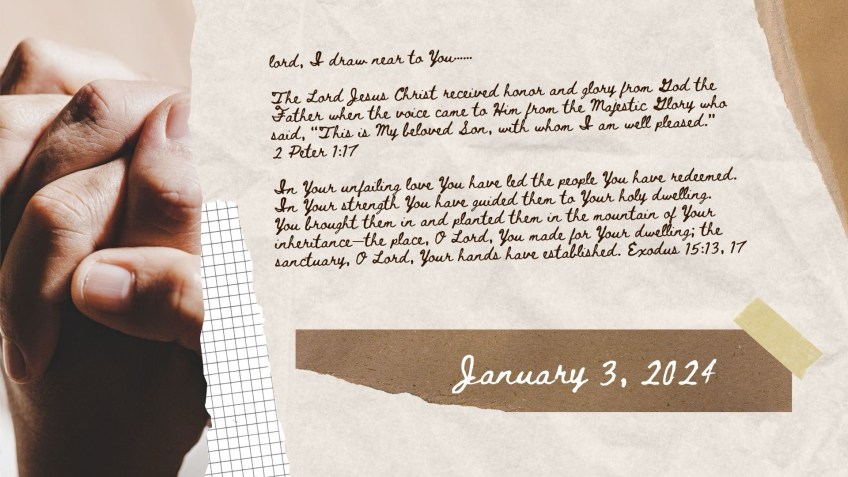 lord, I draw near to You......
The Lord Jesus Christ received honor and glory from God the
Father when the voice came to Him from the Majestic Glory who
said, "This is My beloved Son, with whom I am well pleased."
2 Peter 1:17
In Your unfailing love You have led the people You have redeemed.
In Your strength You have guided them to Your holy dwelling.
You brought them in and planted them in the mountain of Your
inheritance—the place, O Lord, You made for Your dwelling; the
sanctuary, O Lord, Your hands have established. Exodus 15:13, 17
January 3, 2024